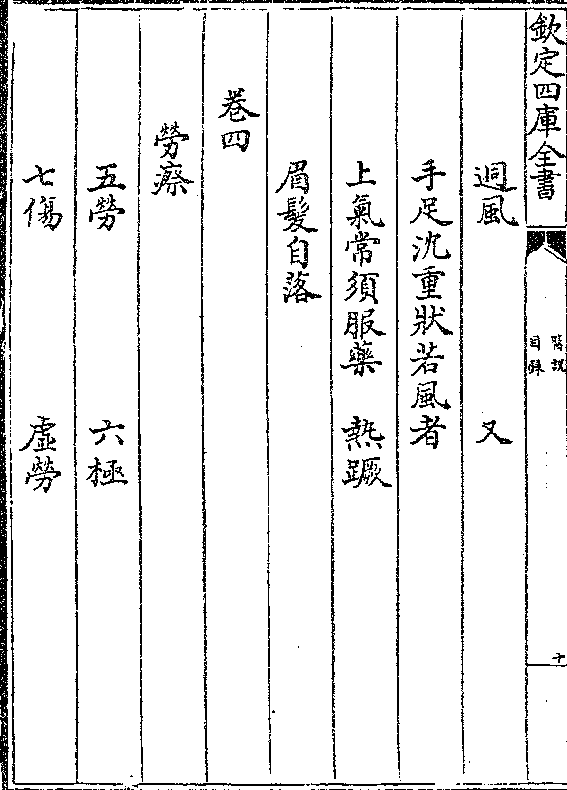 欽定四庫全書
醫説
目録
十
迵風 又
手足沉重狀若風者
上氣常須服藥 熱蹶
眉髮自落
卷四
勞瘵
五勞 六極
七傷 虛勞